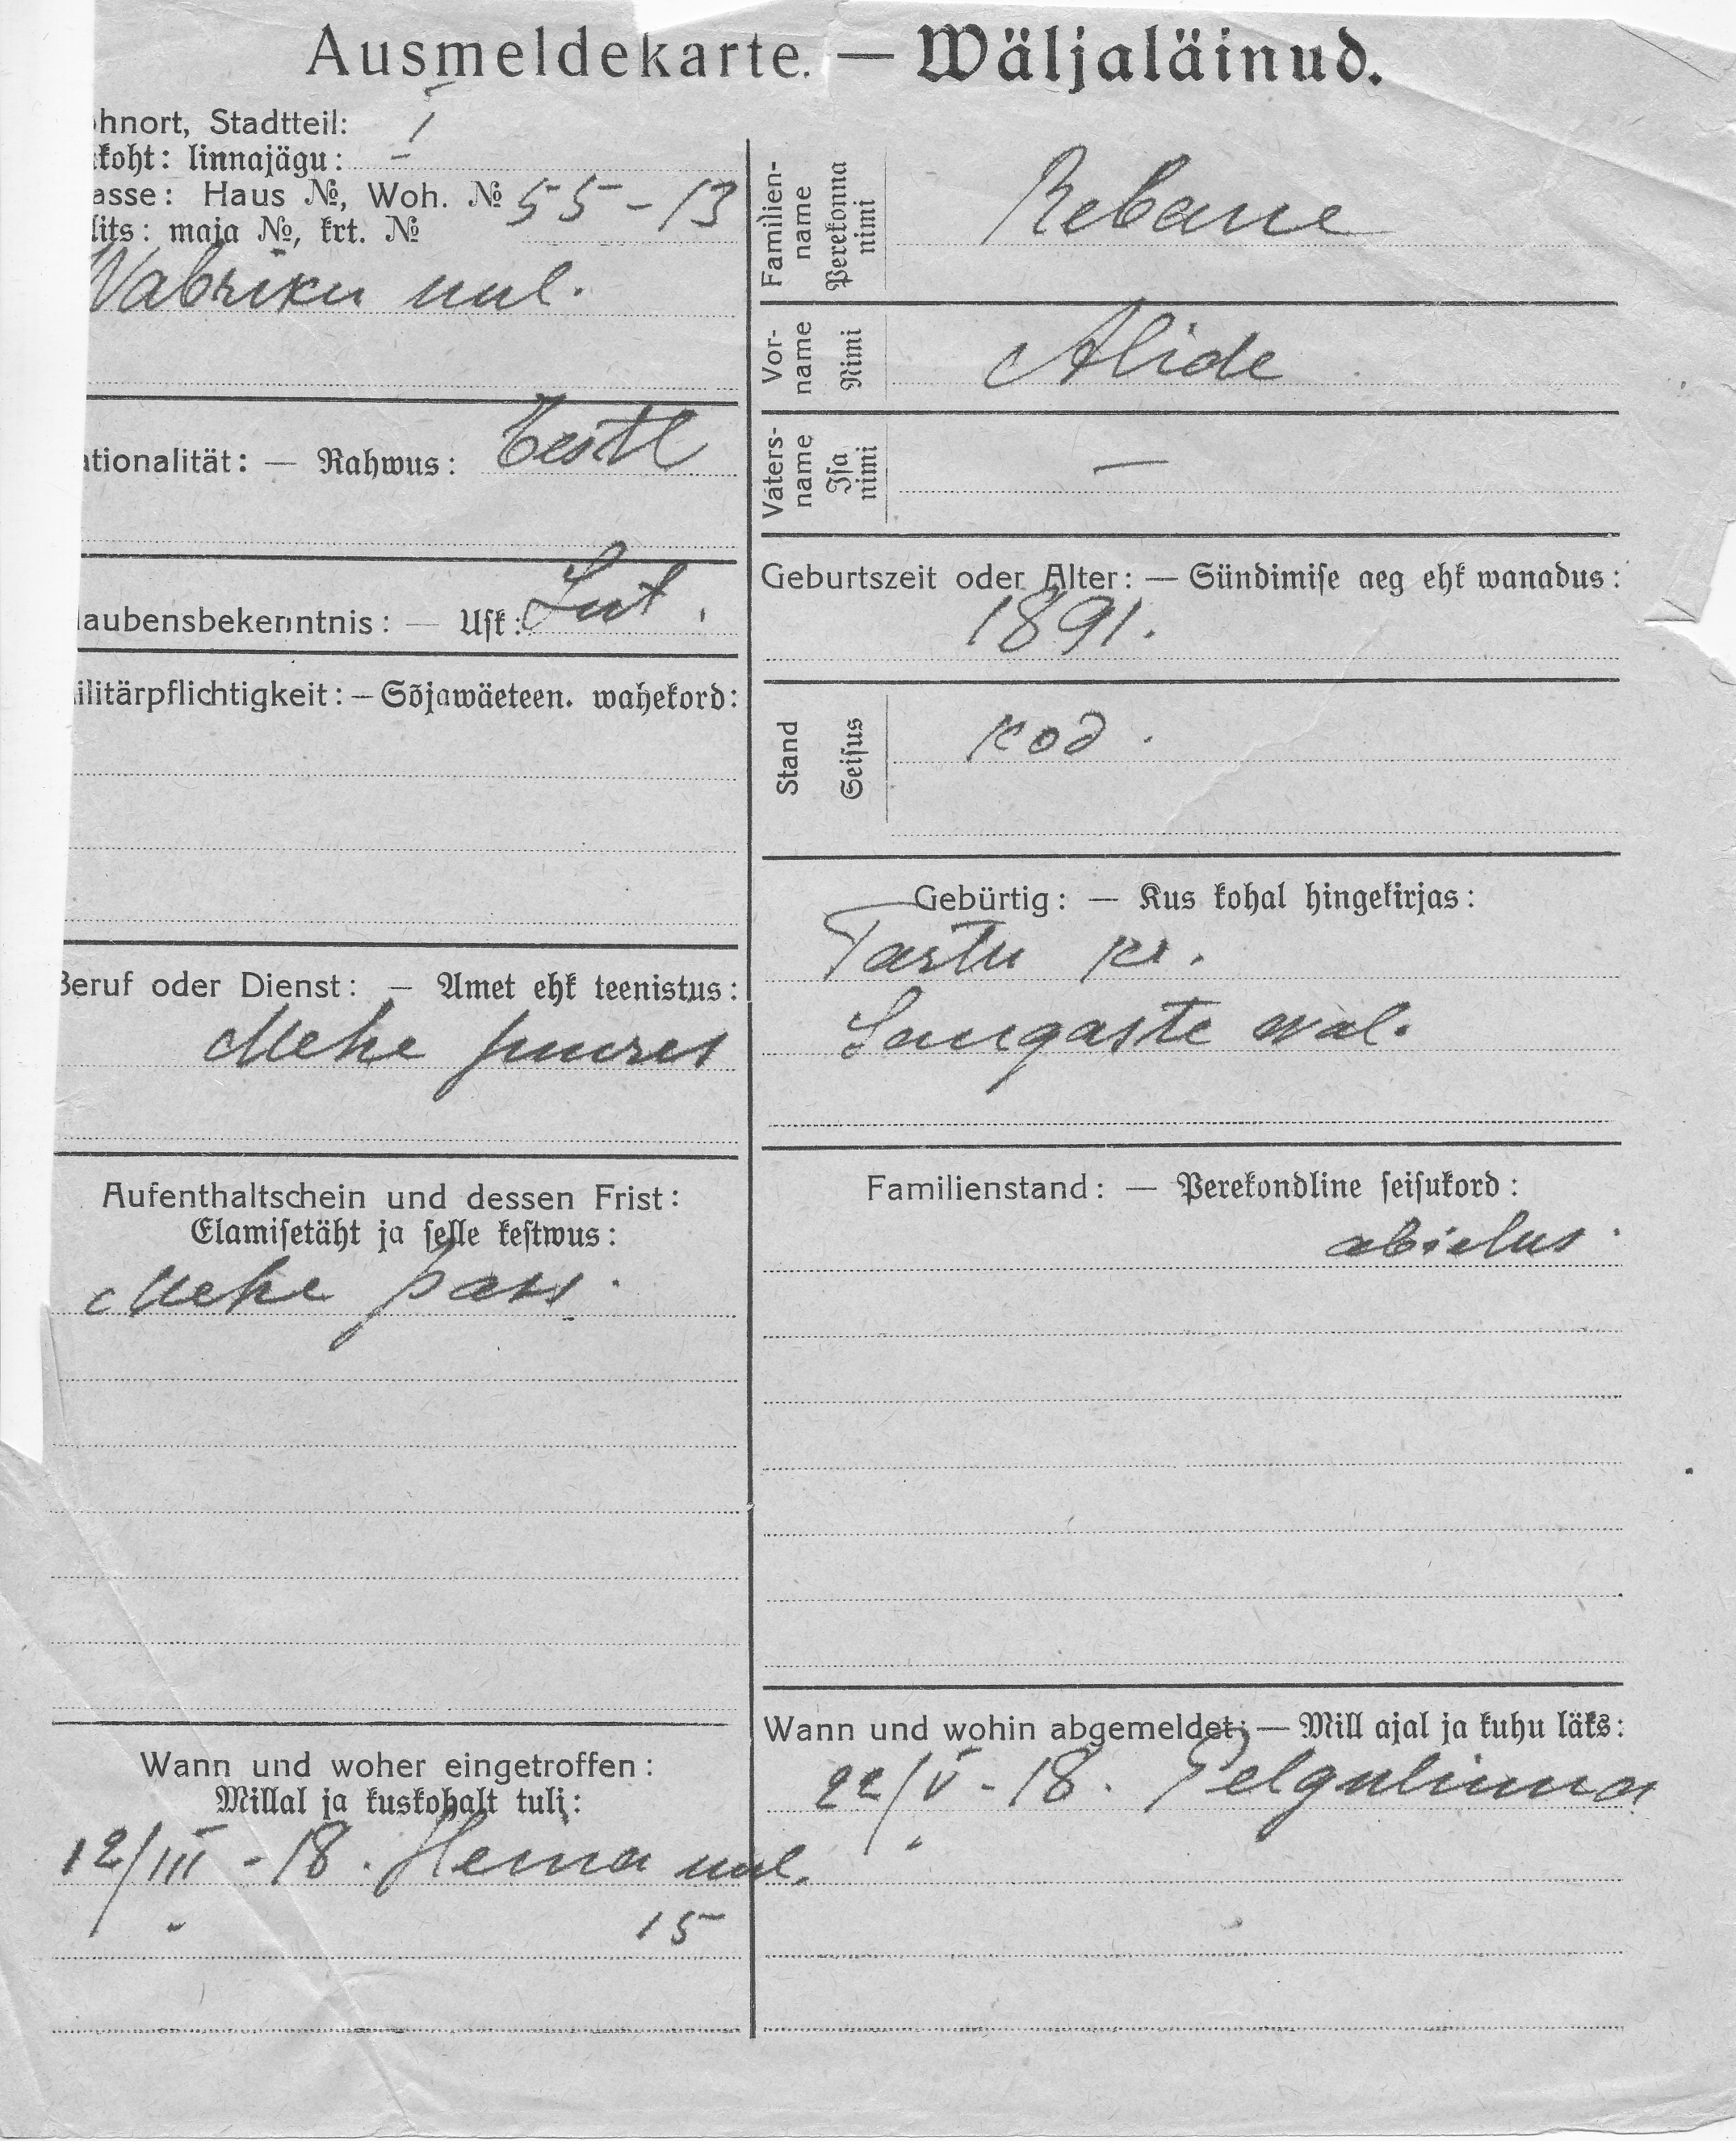 Ausmeldekarte. — Wäljaläinud.
ohnort, Stadtteil: I
koht: linnajägu:
asse: Haus №, Woh. № 55-13
lits: maja №, krt. №
Wabriku uul.
ationalität: — Rahwus: Eestl
laubensbekenntnis: — Usk: Lut.
ilitärpflichtigkeit: — Sõjawäeteen. wahekord:
Beruf oder Dienst: — Amet ehk teenistus:
Mehe juures
Aufenthaltschein und dessen Frist:
Elamisetäht ja selle kestwus:
Mehe pass.
Wann und woher eingetroffen:
Millal ja kuskohalt tuli:
12/III - 18. Heina uul.
15
Familien-name Perekonna nimi Rebane
Vor-name Nimi Alide
Vaters-name Isa nimi —
Geburtszeit oder Alter: — Sündimise aeg ehk wanadus:
1891.
Stand Seisus kod.
Gebürtig: — Kus kohal hingekirjas:
Tartu kr.
Sangaste wal.
Familienstand: — Perekondline seisukord:
abielus.
Wann und wohin abgemeldet: — Mill ajal ja kuhu läks:
22/V - 18. Pelgulinna